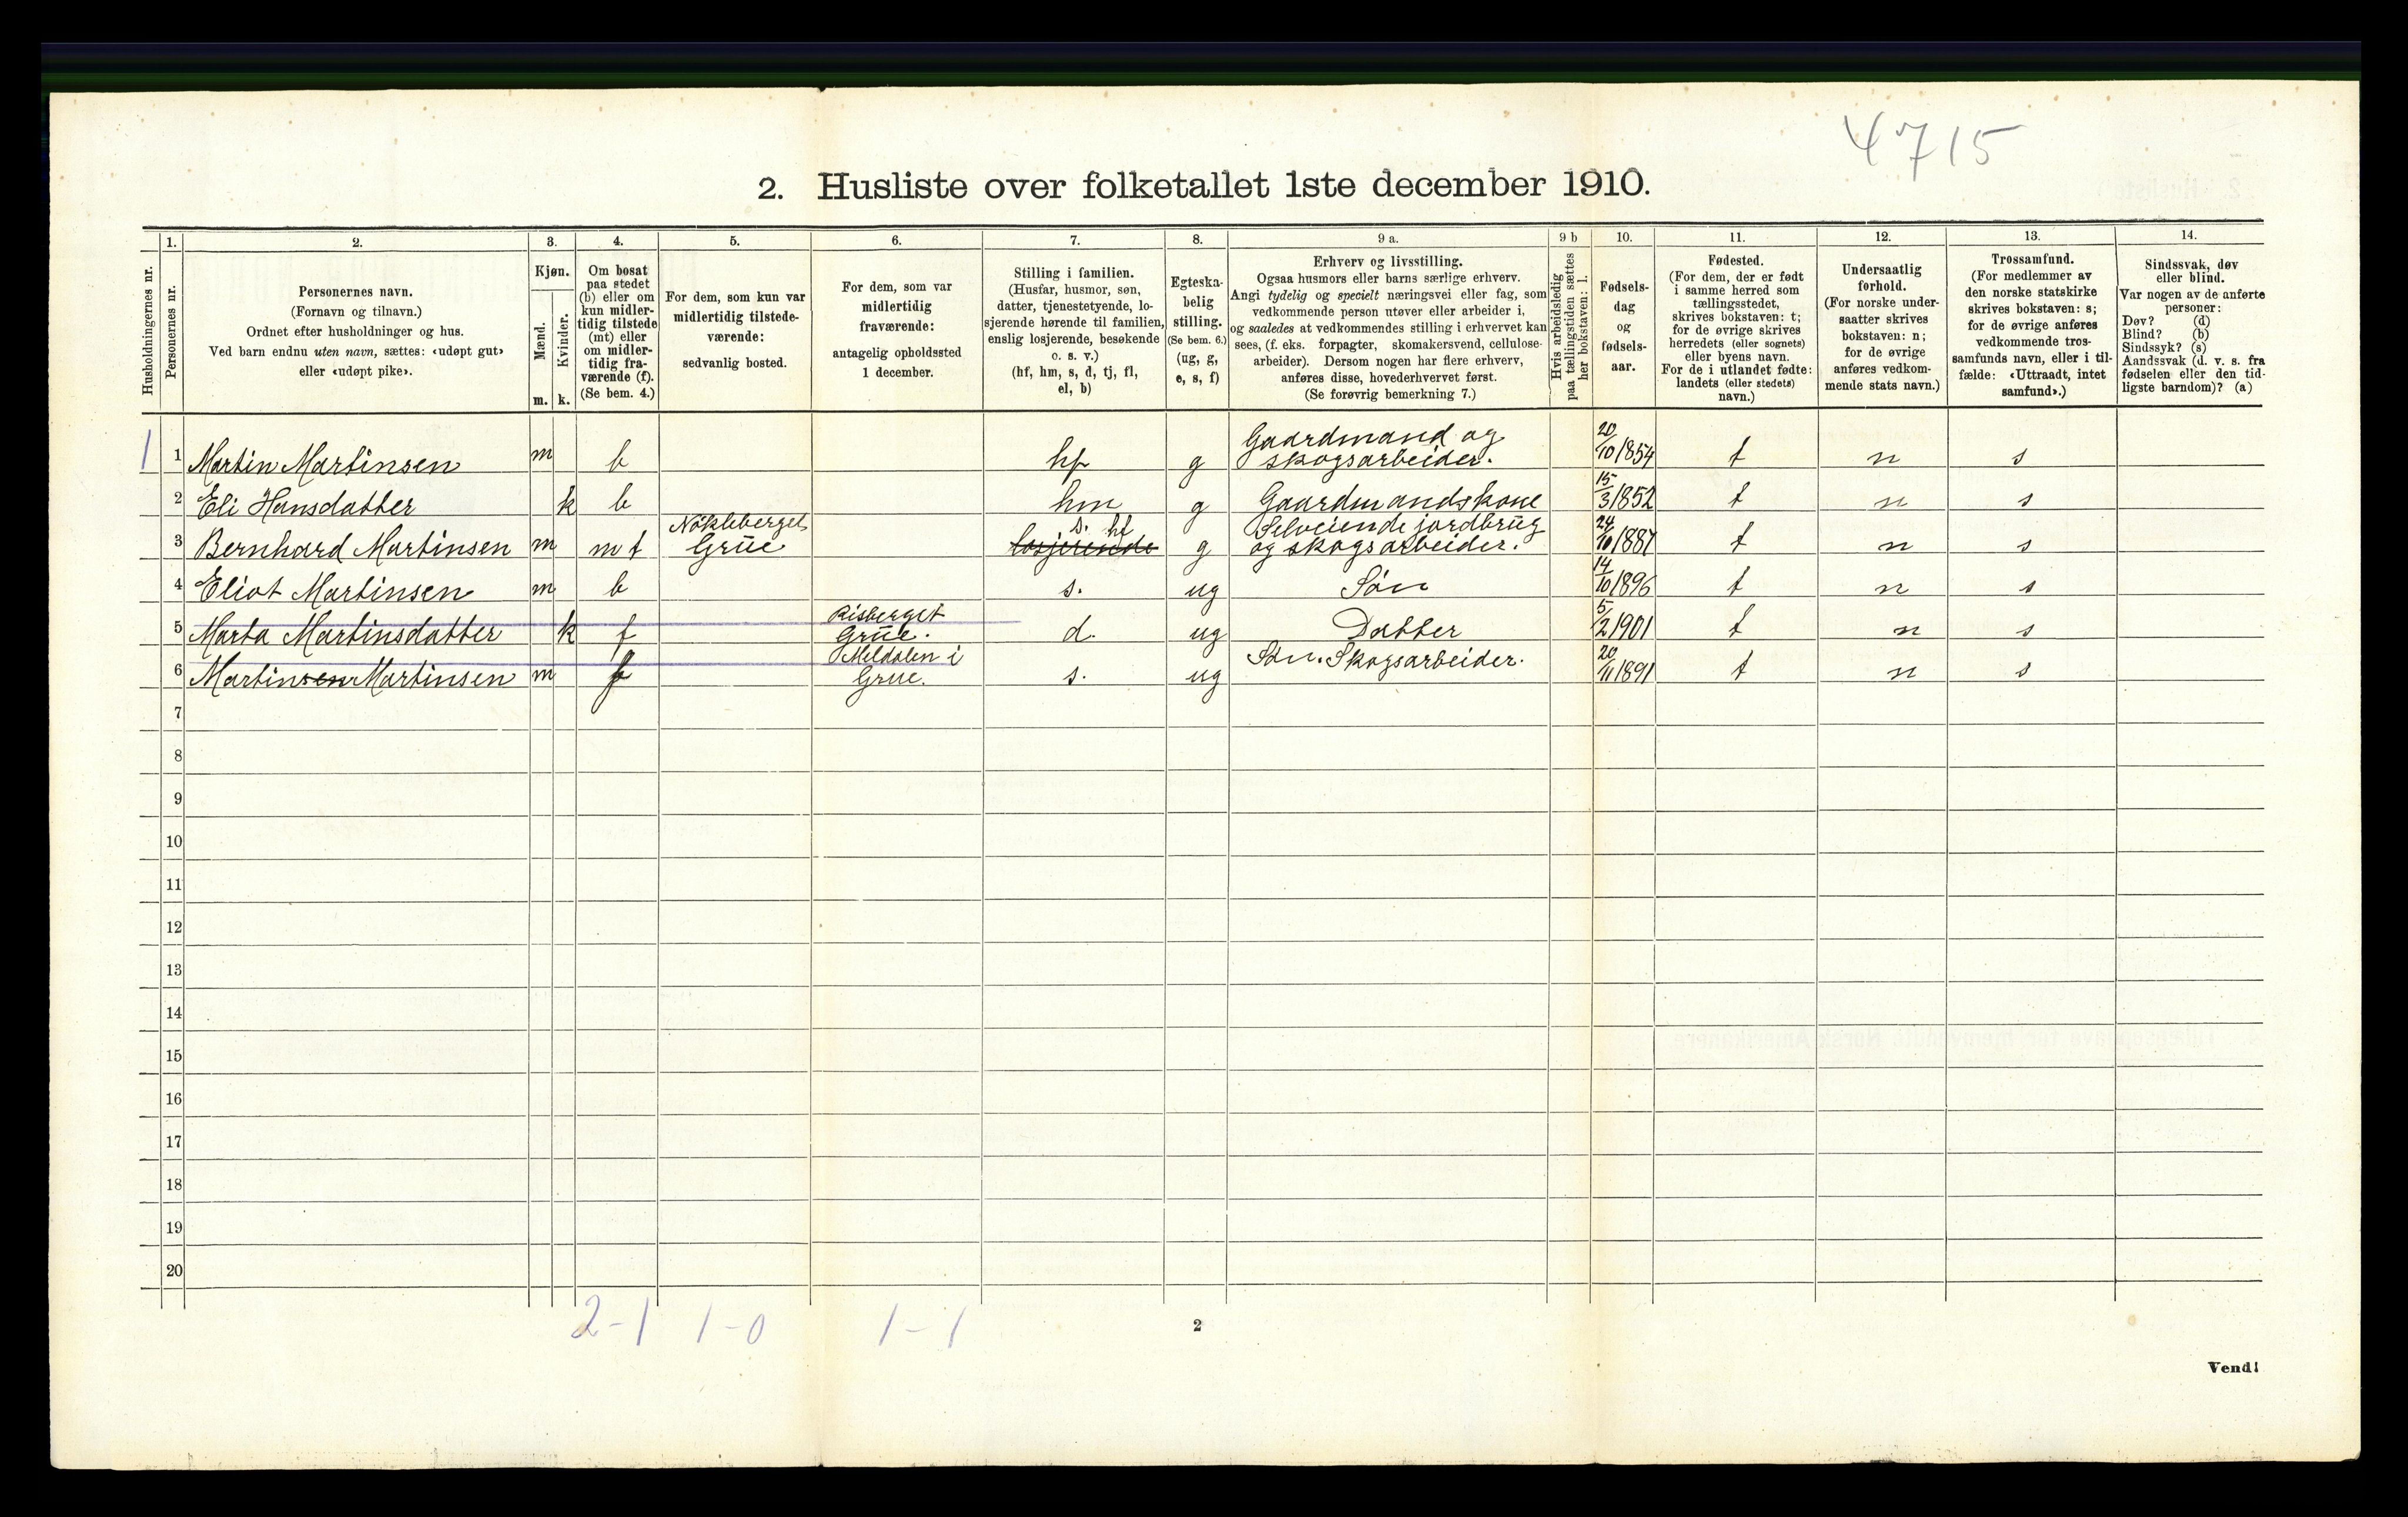 4715
2. Husliste over folketallet 1ste december 1910.
Husholdningernes nr.
1.
Personernes nr.
2.
Personernes navn.
(Fornavn og tilnavn.)
Ordnet efter husholdninger og hus.
Ved barn endnu uten navn, sættes: «udøpt gut»
eller «udøpt pike».
3.
Kjøn.
Mænd.
Kvinder.
m. k.
4.
Om bosat
paa stedet
(b) eller om
kun midler-
tidig tilstede
(mt) eller
om midler-
tidig fra-
værende (f).
(Se bem. 4.)
5.
For dem, som kun var
midlertidig tilstede-
værende:
sedvanlig bosted.
6.
For dem, som var
midlertidig
fraværende:
antagelig opholdssted
1 december.
7.
Stilling i familien.
(Husfar, husmor, søn,
datter, tjenestetyende, lo-
sjerende hørende til familien,
enslig losjerende, besøkende
o. s. v.)
(hf, hm, s, d, tj, fl,
el, b)
8.
Egteska-
belig
stilling.
(Se bem. 6.)
(ug, g,
e, s, f)
9 a.
Erhverv og livsstilling.
Ogsaa husmors eller barns særlige erhverv.
Angi tydelig og specielt næringsvei eller fag, som
vedkommende person utøver eller arbeider i,
og saaledes at vedkommendes stilling i erhvervet kan
sees, (f. eks. forpagter, skomakersvend, cellulose-
arbeider). Dersom nogen har flere erhverv,
anføres disse, hovederhvervet først.
(Se forøvrig bemerkning 7.)
9 b
Hvis arbeidsledig
paa tællingstiden sættes
her bokstaven: l.
10.
Fødsels-
dag
og
fødsels-
aar.
11.
Fødested.
(For dem, der er født
i samme herred som
tællingsstedet,
skrives bokstaven: t;
for de øvrige skrives
herredets (eller sognets)
eller byens navn.
For de i utlandet fødte:
landets (eller stedets)
navn.)
12.
Undersaatlig
forhold.
(For norske under-
saatter skrives
bokstaven: n;
for de øvrige
anføres vedkom-
mende stats navn.)
13.
Trossamfund.
(For medlemmer av
den norske statskirke
skrives bokstaven: s;
for de øvrige anføres
vedkommende tros-
samfunds navn, eller i til-
fælde: «Uttraadt, intet
samfund».)
14.
Sindssvak, døv
eller blind.
Var nogen av de anførte
personer:
Døv? (d)
Blind? (b)
Sindssyk? (s)
Aandssvak (d. v. s. fra
fødselen eller den tid-
ligste barndom)? (a)
1 1 Martin Martinsen m b hf g Gaardmand og skogsarbeider. 20/10 1854 t n s
2 Eli Hansdatter k b hm g Gaardmandskone 15/3 1852 t n s
3 Bernhard Martinsen m mt Nökleberget Grue losjerende s. hf g Selveiende jordbrug og skogsarbeider. 24/10 1887 t n s
4 Eliot Martinsen m b s. ug Sön 14/10 1896 t n s
5 Marta Martinsdatter k f Risberget Grue. d. ug Datter 5/2 1901 t n s
6 Martinsen Martinsen m f Meldalen i Grue. s. ug Sön. Skogsarbeider. 20/11 1891 t n s
7
8
9
10
11
12
13
14
15
16
17
18
19
20
2-1 1-0 1-1
2
Vend!